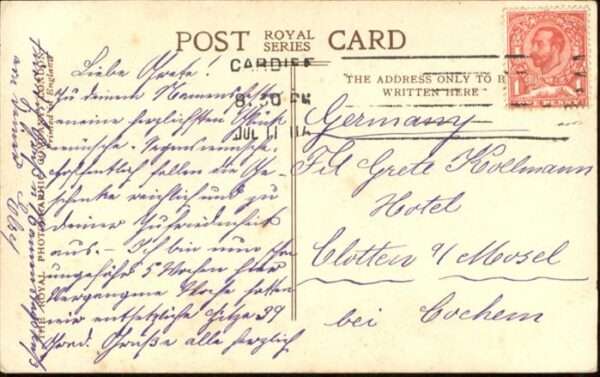 POST ROYAL SERIES CARD
CARDIFF
8:30 PM
JUL 11
THE ADDRESS ONLY TO B
WRITTEN HERE
PENNY
Liebe Grete!
Zu deinem Namenstage
meine herzlichsten Glück
wünsche.
hoffentlich fallen die Ge-
schenke reichlich und zu
deiner Zufriedenheit
aus. – Ich bin nun schon
ungefähr 5 Wochen hier
Vergangene Woche hatten
wir entsetzliche Hitze 39
Grad. Grüße alle herzlich
Germany
Frl Grete Kollmann
Hotel
Clotten a/ Mosel
bei Cochem
THE ROYAL PHOTOGRAPHIC COMPANY
Printed in England